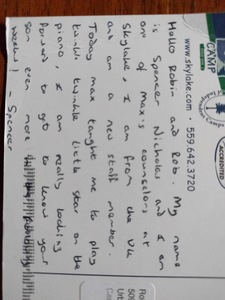 CAMP
www.skylake.com • 559.642.3720
ACCREDITED
Hello Robin and Rob. My name
is Spencer Nicholas and I am
one of Max's counselors at
Skylake, I am from the UK
and am a new staff member.
Today max taught me to play
twinkle twinkle little star on the
piano, I am really looking
forward to get to know your
son even more
weeks! - Spencer